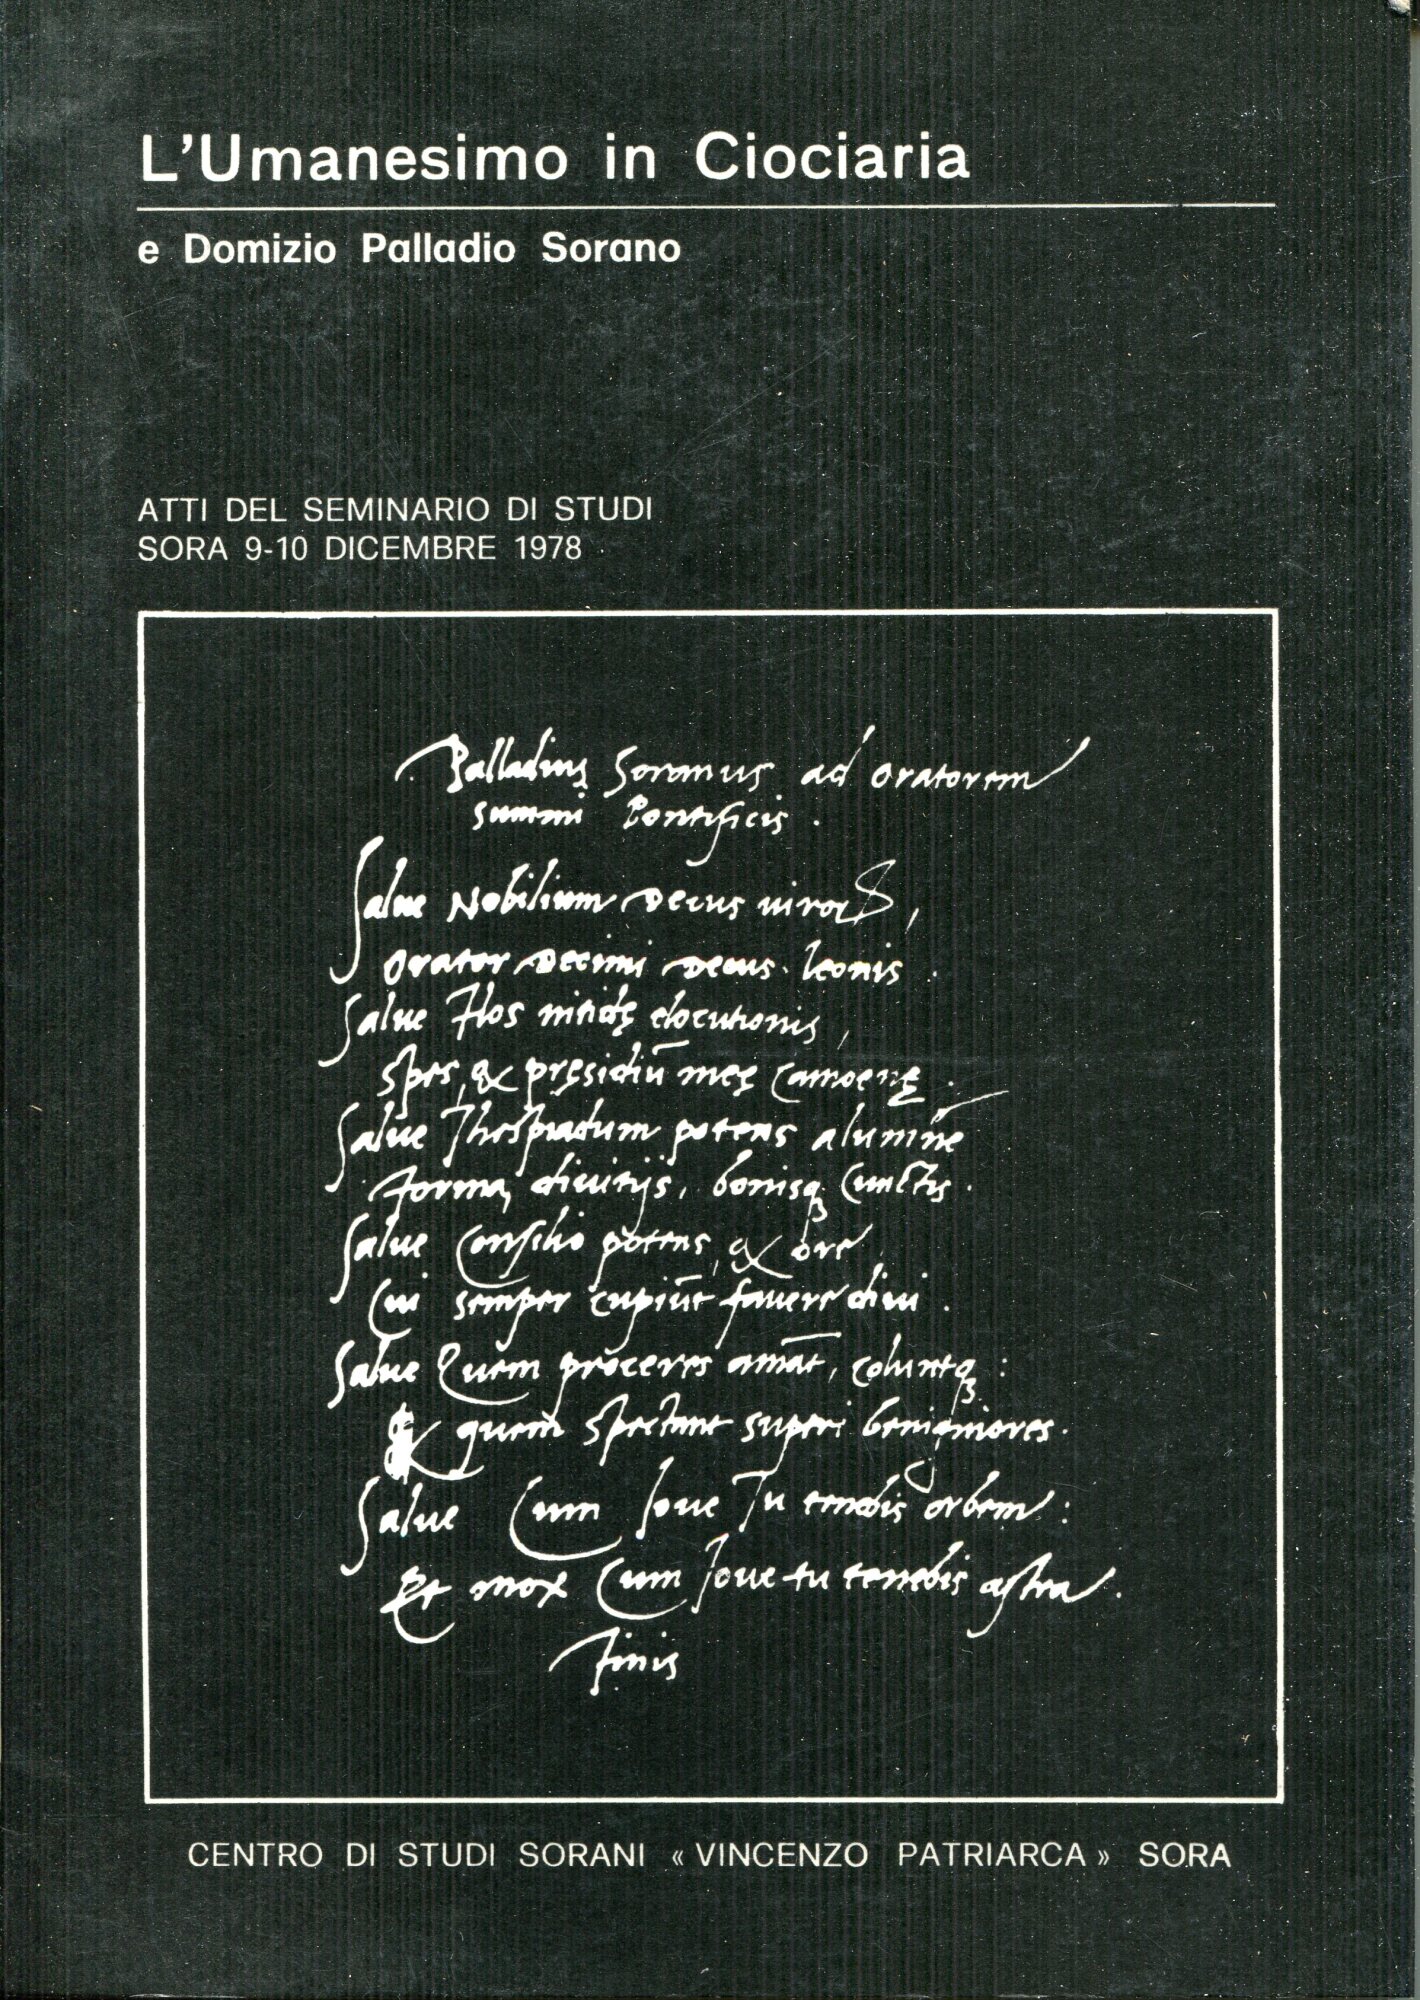 L'Umanesimo in Ciociaria
e Domizio Palladio Sorano
ATTI DEL SEMINARIO DI STUDI
SORA 9-10 DICEMBRE 1978
Palladius Soranus ad oratorem
summi Pontificis .
Salve Nobilium Decus viroꝝ,
Orator Decimi Decus . leonis .
Salue Flos nitidę elocutionis,
Spes, & pręsidiū meę Camoenę .
Salue Thespiadum potens alumne
Forma, diuitijs, bonisq̨ Cunctis .
Salue Consilio potens, & ore
Cui semper cupiūt fauere diui .
Salue Quem proceres amāt, coluntq̨ :
& quem spectant superi benigniores .
Salue Cum Ioue Tu tenebis orbem :
Et mox Cum Ioue tu tenebis astra .
Finis
CENTRO DI STUDI SORANI « VINCENZO PATRIARCA » SORA